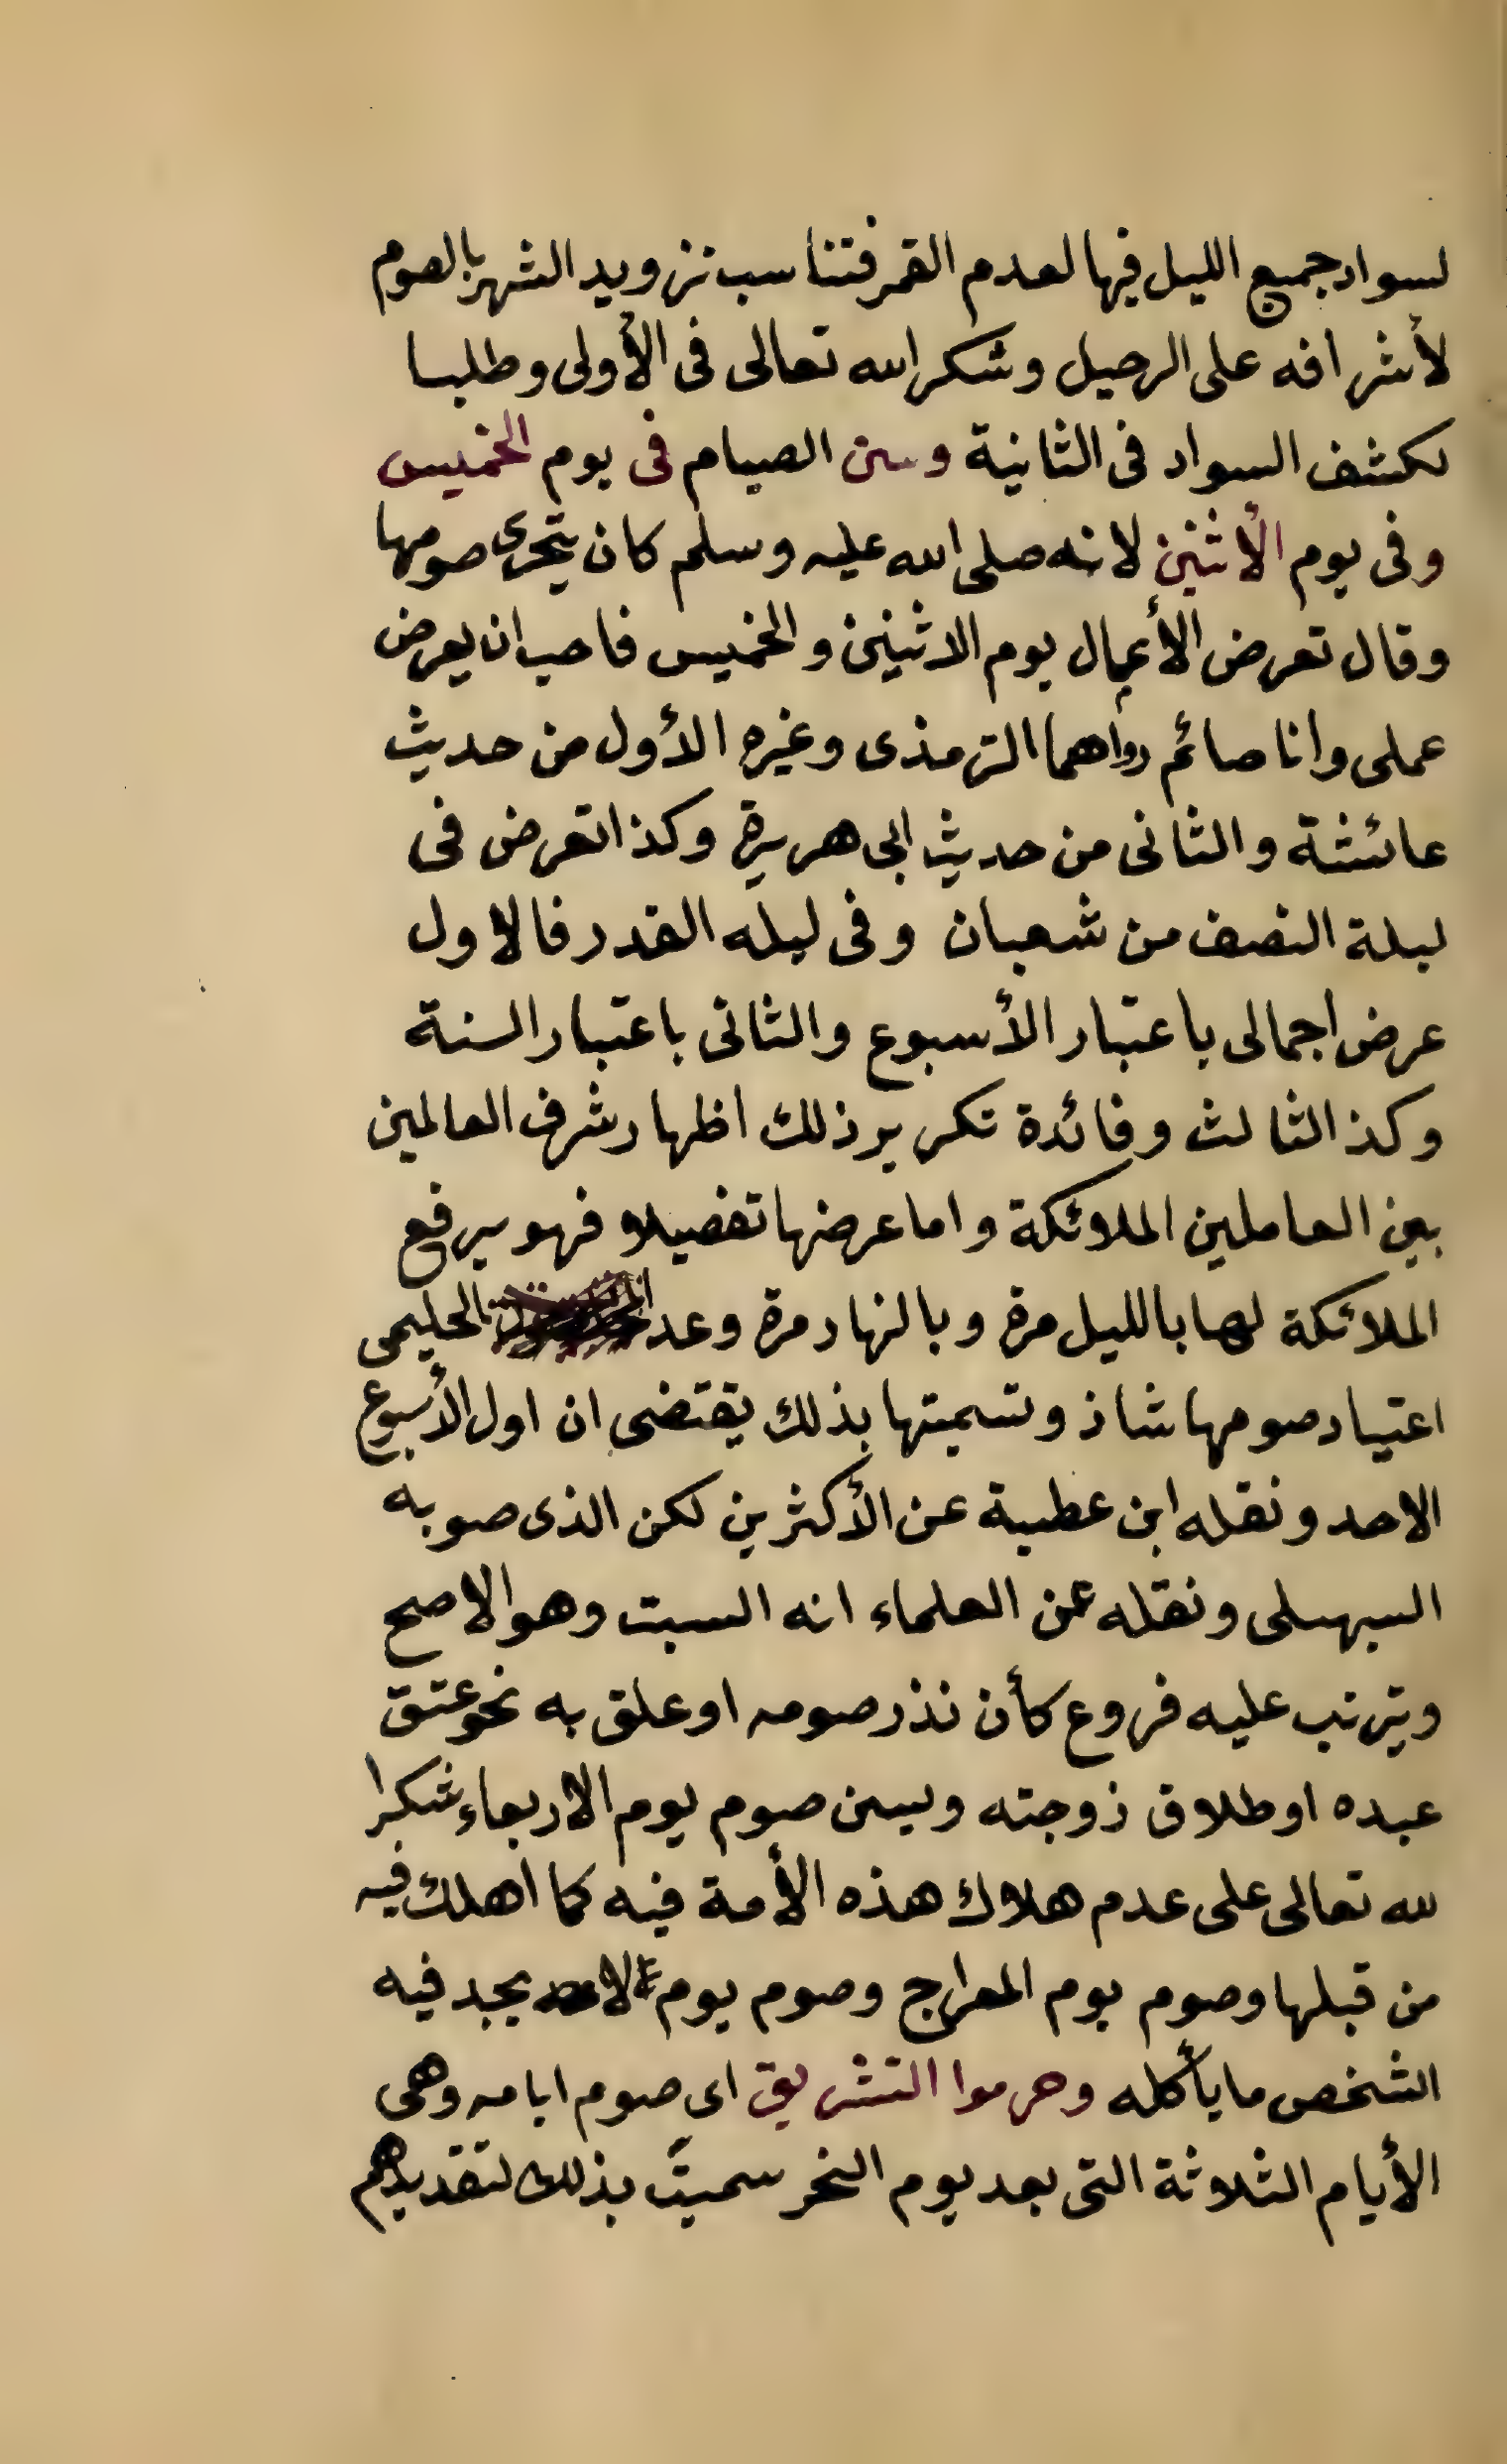 لسواد جميع الليل فيها لعدم القمر فتناسب تزويد الشهر بالصوم
لأشرافه على الرحيل وشكرالله تعالى فى الأولى وطلبا
لكشف السواد فى الثانية وسن الصيام فى يوم الخميس
وفى يوم الأثنين لانه صلى الله عليه وسلم كان يتحرى صومها
وقال تعرض الأعمال يوم الاثنين والخميس فاحب ان يعرض
عملى وانا صائم رواهما الترمذى وغيره الأول من حديث
عائشة والثانى من حديث ابى هريرة وكذا تعرض فى
ليلة النصف من شعبان وفى ليله القدر فالاول
عرض اجمالى باعتبار الأسبوع والثانى باعتبار السنة
وكذ الثالث وفائدة تكرير ذلك اظهار شرف العالمين
بين العاملين الملائكة واما عرضها تفصيلا فهو يرفع
الملائكة لها بالليل مرة وبالنهار مرة وعد الحليمى
اعتياد صومها شاذ وتسميتها بذلك يقتضى ان اول الأسبوع
الاحد ونقله ابن عطية عن الأكثرين لكن الذى صوبه
السهيلى ونقله عن العلماء انه السبت وهو الاصح
ويترتب عليه فروع كأن نذر صومه اوعلق به نحو عتق
عبده اوطلاق زوجته ويسن صوم يوم الاربعاء شكرا
لله تعالى على عدم هلاك هذه الأمة فيه كما اهلك فيه
من قبلها وصوم يوم المعراج وصوم يوم لا يجد فيه
الشخص ما يأكله وحرموا التشريق اى صوم ايامه وهى
الأيام الثلاثة التى بعد يوم النحر سميت بذلك لتقديدهم